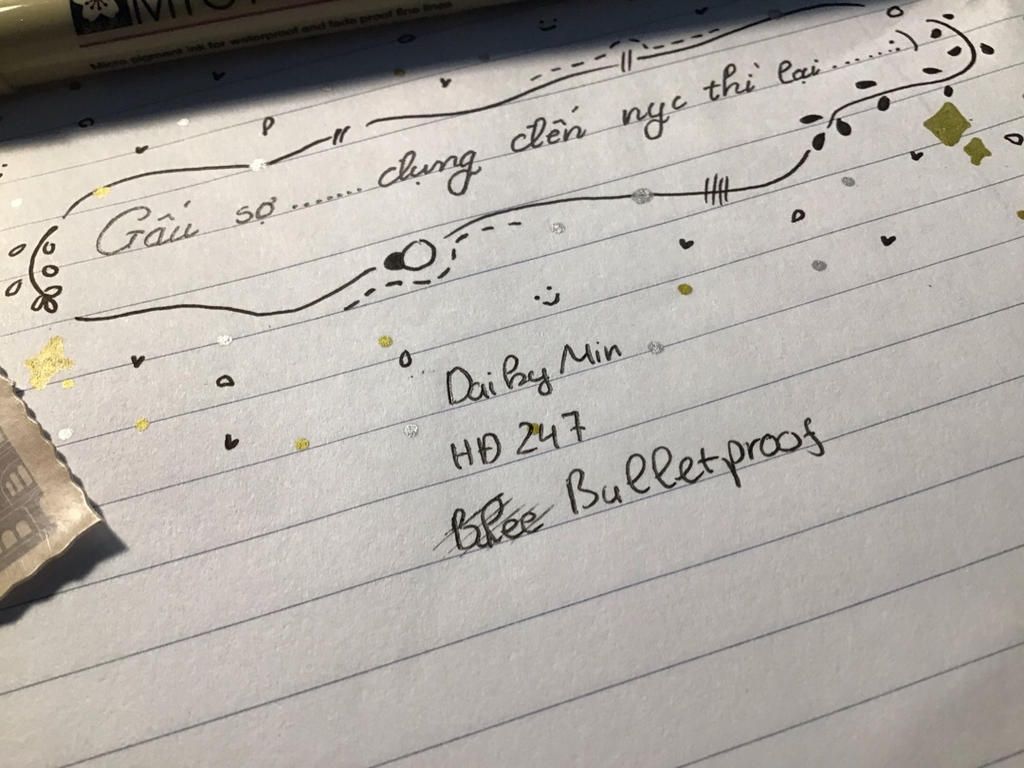 Micro pigment ink for waterproof and fade proof fine lines
Gấu sợ ...... đụng đến nyc thì lại ......:)
Daihy Min
HĐ 247
Bulletproof